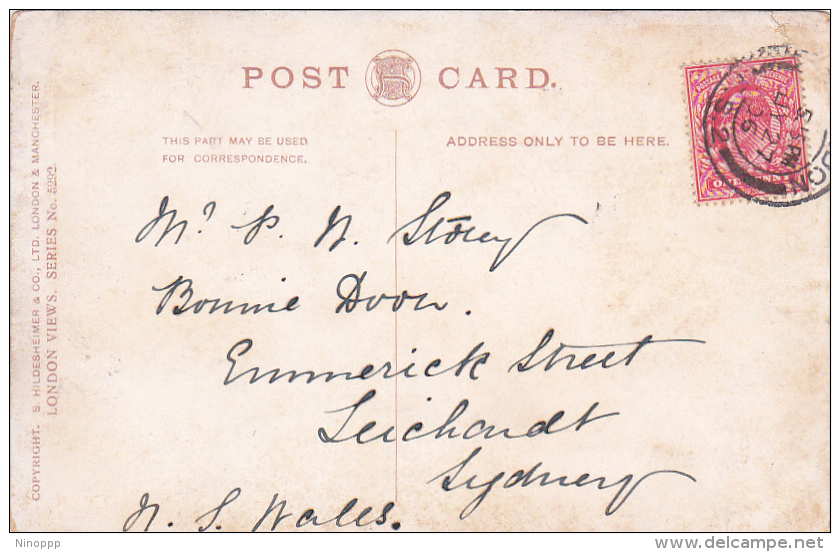 POST CARD.
THIS PART MAY BE USED
FOR CORRESPONDENCE.
ADDRESS ONLY TO BE HERE.
COPYRIGHT. S. HILDESHEIMER & CO., LTD. LONDON & MANCHESTER.
LONDON VIEWS. SERIES No. 5292.
Mr P. N. Storey
Bonnie Doon.
Emmerick Street
Leichardt
Sydney
N. S. Wales.
5 15 PM
27
06
Ninoppp
delcampe.net